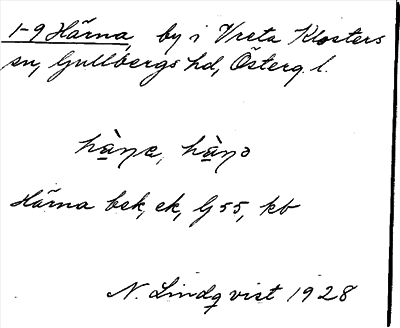 1-9 Härna, by i Vreta Klosters
sn, Gullbergs hd, Österg. l.
hä̀ꞃa, hä̀ꞃə
Härna bek, ek, G 55, kb
N. Lindqvist 1928